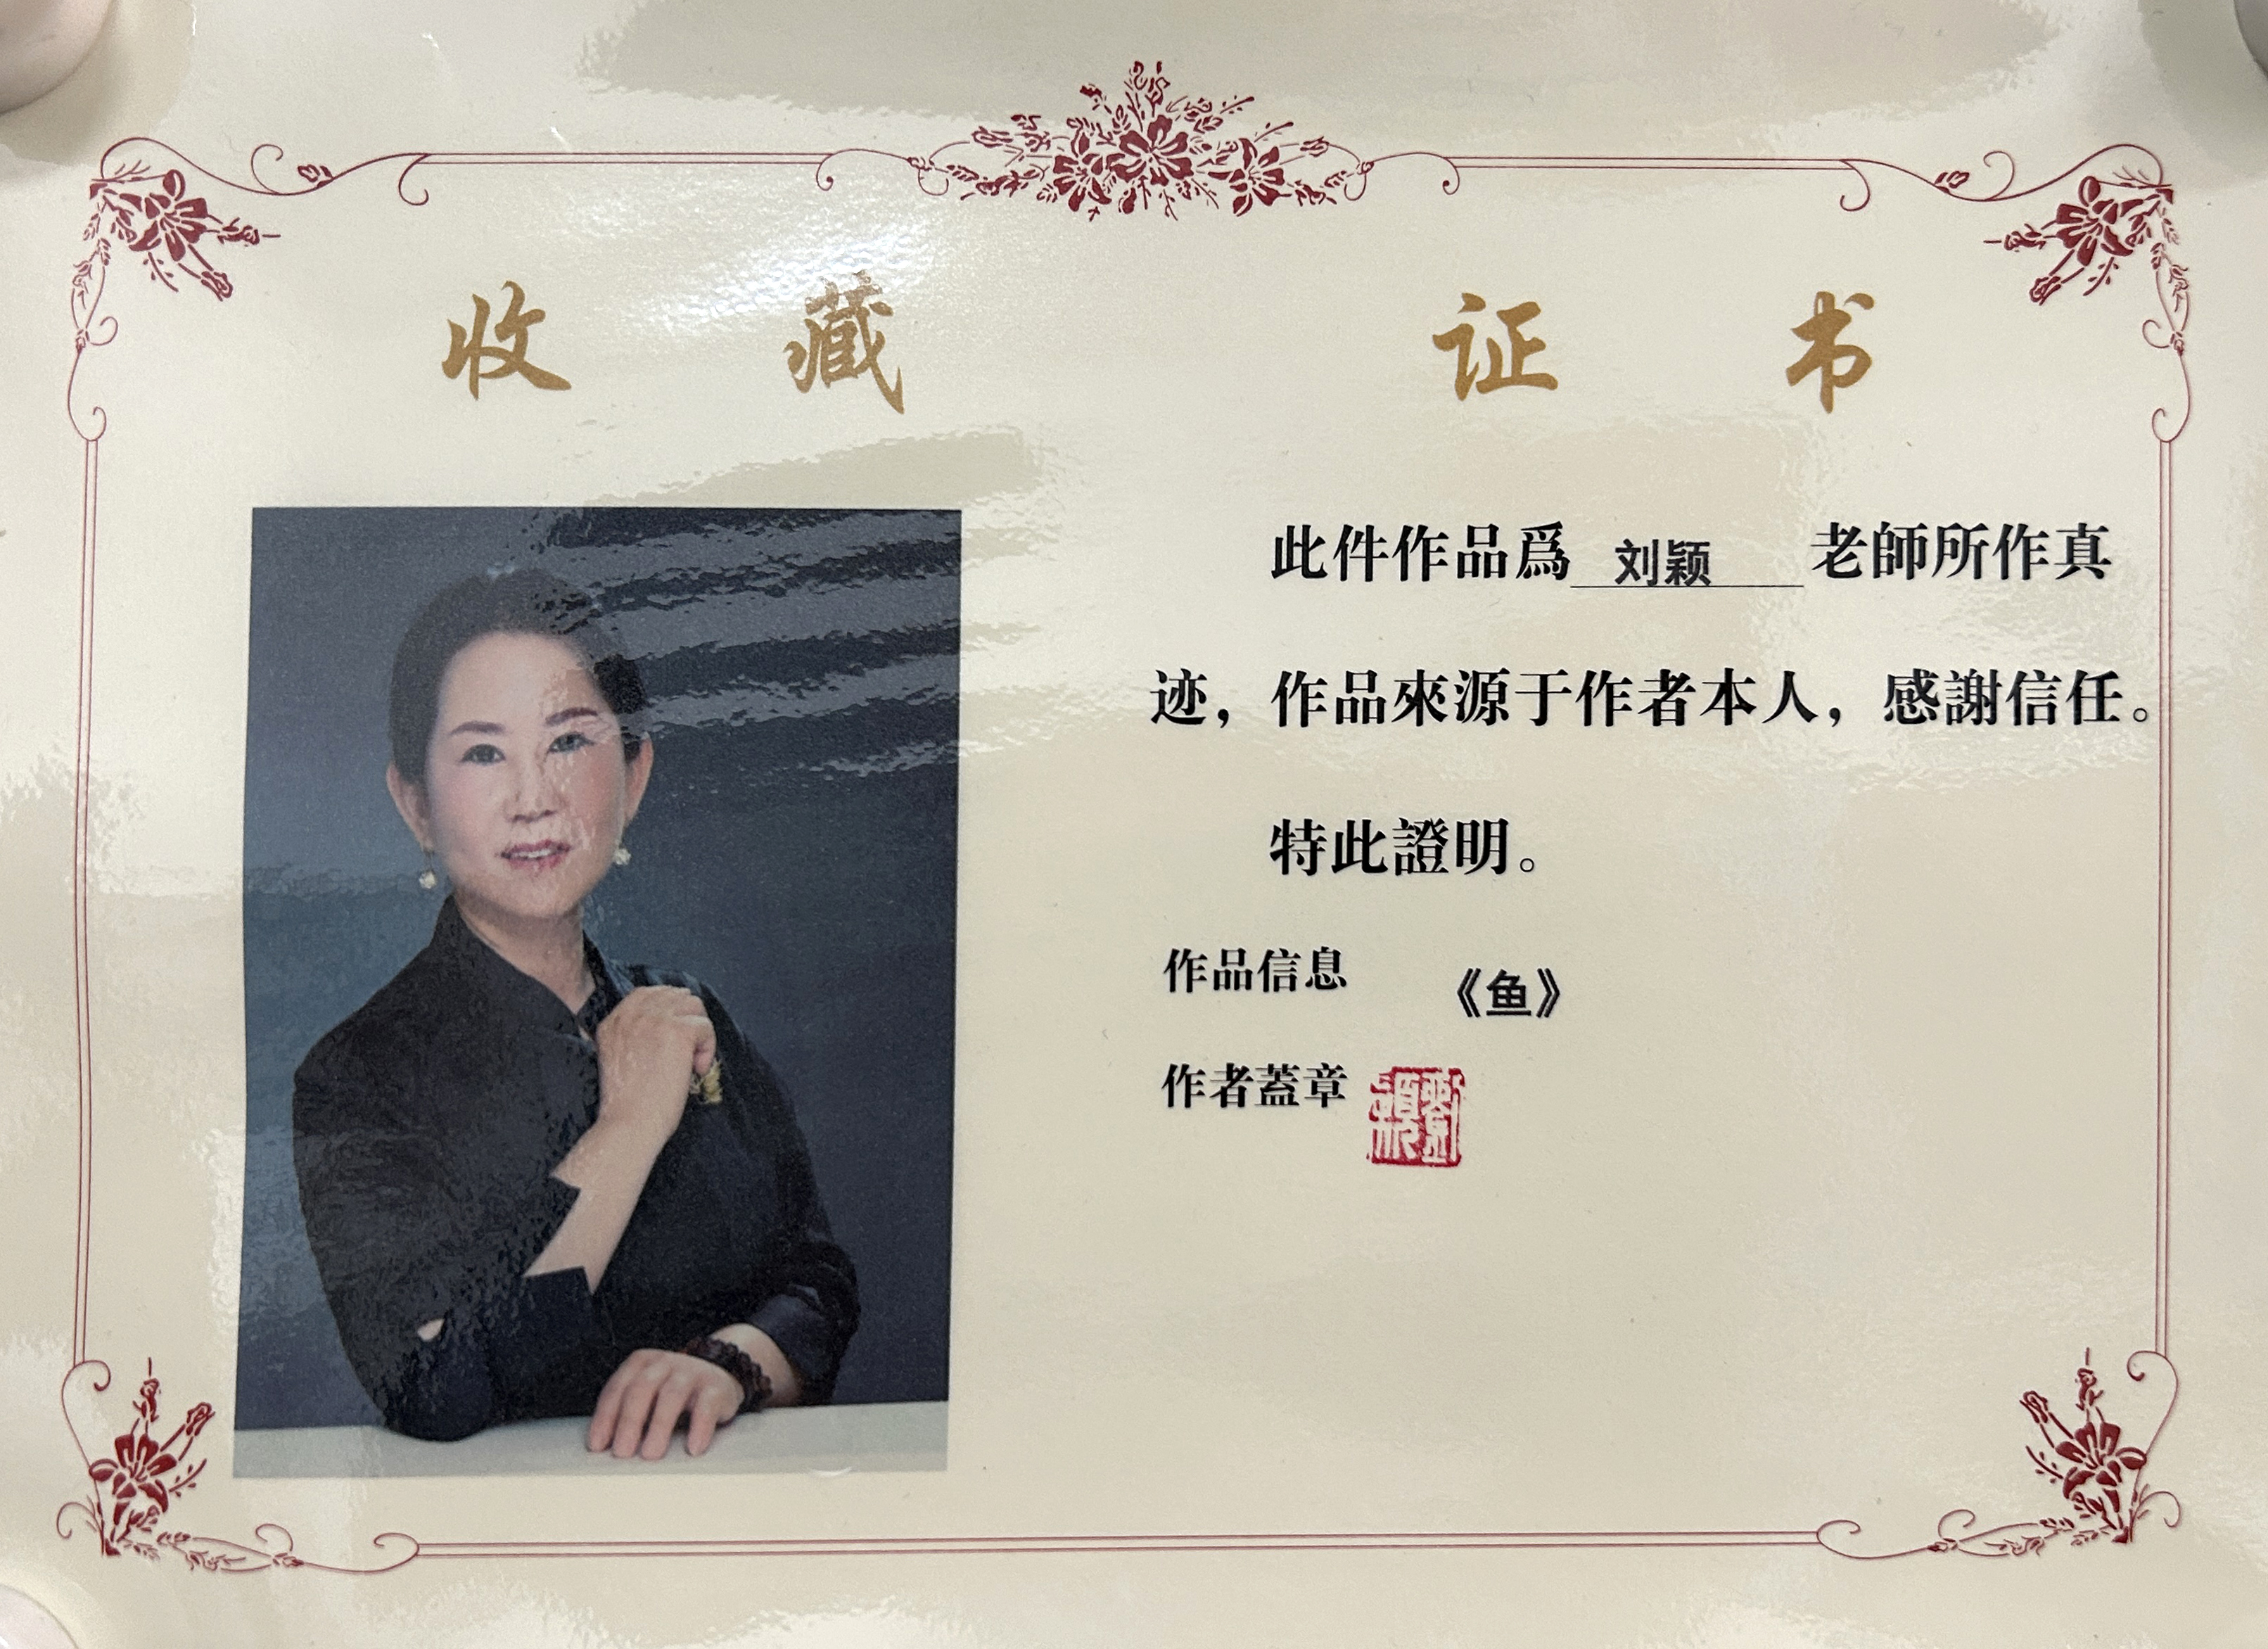 收藏证书
此件作品爲 刘颖 老師所作真
迹，作品來源于作者本人，感謝信任。
特此證明。
作品信息 《鱼》
作者蓋章
劉穎